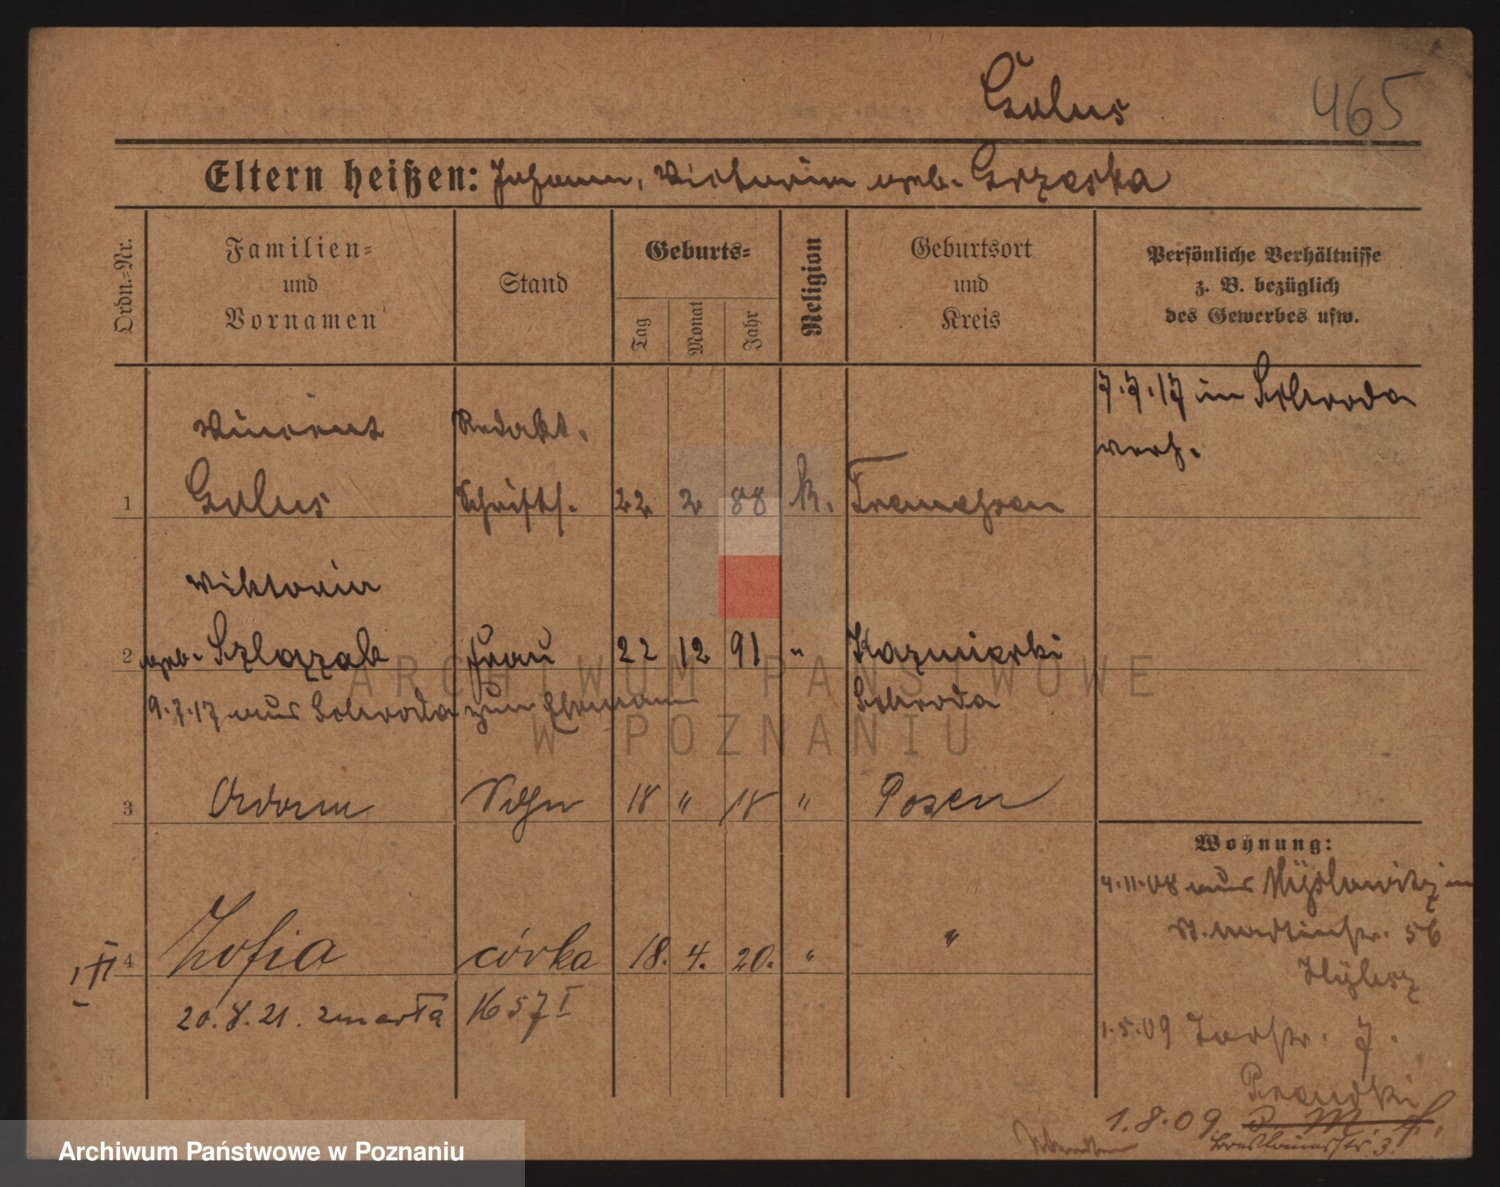 Golus 465
Eltern heißen: Johann, Victoria geb. Grzeska
Ordn.-Nr.
Familien- und Vornamen
Stand
Geburts-
Tag Monat Jahr
Religion
Geburtsort und Kreis
Persönliche Verhältnisse
z. B. bezüglich
des Gewerbes usw.
7.7.17 in Schroda
verh.
Vincent Redakt.
1 Golus Schrifts. 22 2 88 K. Tremessen
Viktoria
2 geb. Szlazzak Frau 22 12 91 " Kazmierki
9.7.17 aus Schroda zum Ehemann Schroda
3 Adam Sohn 18 " 18 " Posen
4 Zofia córka 18. 4. 20. " "
20.8.21. zmarła 1657 I
Wohnung:
4.11.08 aus Myslowitz in
St. Martinstr. 56
1.5.09 Torstr. 7.
1.8.09
Breslauerstr. 3.
ARCHIWUM PAŃSTWOWE
W POZNANIU
Archiwum Państwowe w Poznaniu